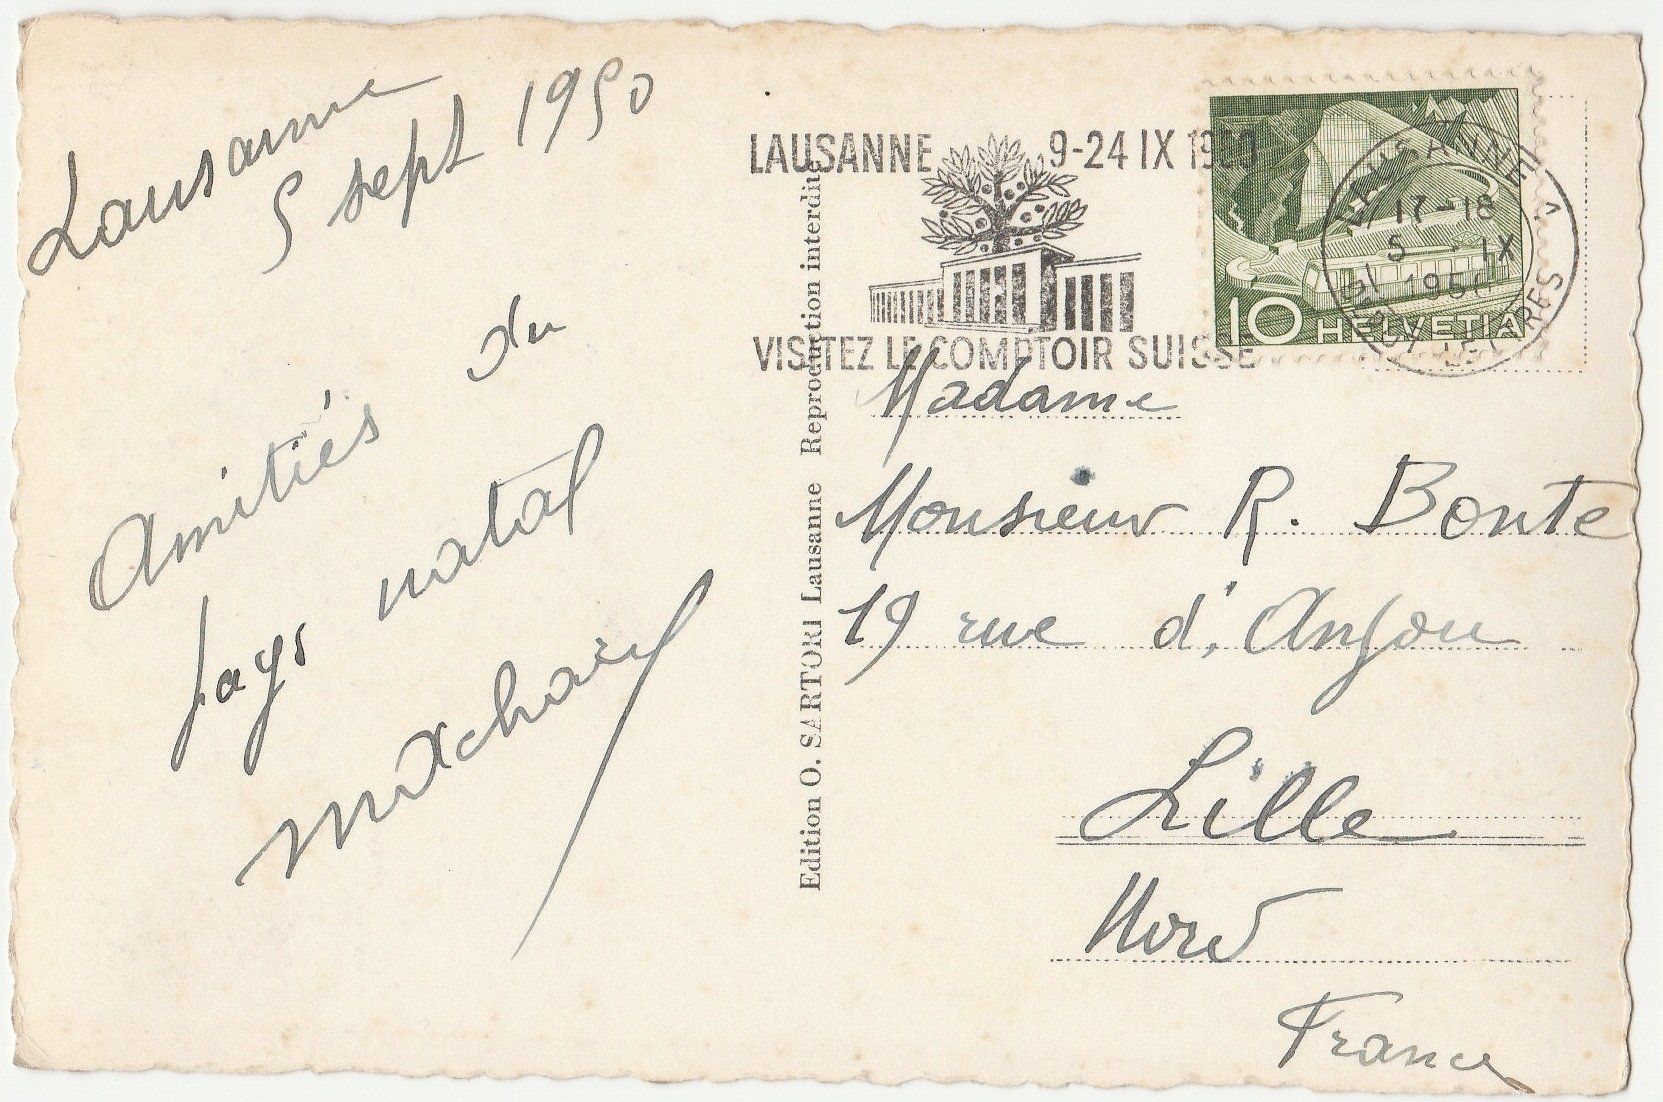 Lausanne
5 sept 1950
Amitiés du
pays natal
LAUSANNE 9-24 IX 1950
VISITEZ LE COMPTOIR SUISSE
LAUSANNE 1
17-18
5 - IX
1950
10 HELVETIA
Edition O. SARTORI Lausanne Reproduction interdite
Madame
Monsieur R. Bonte
19 rue d'Anjou
Lille
Nord
France